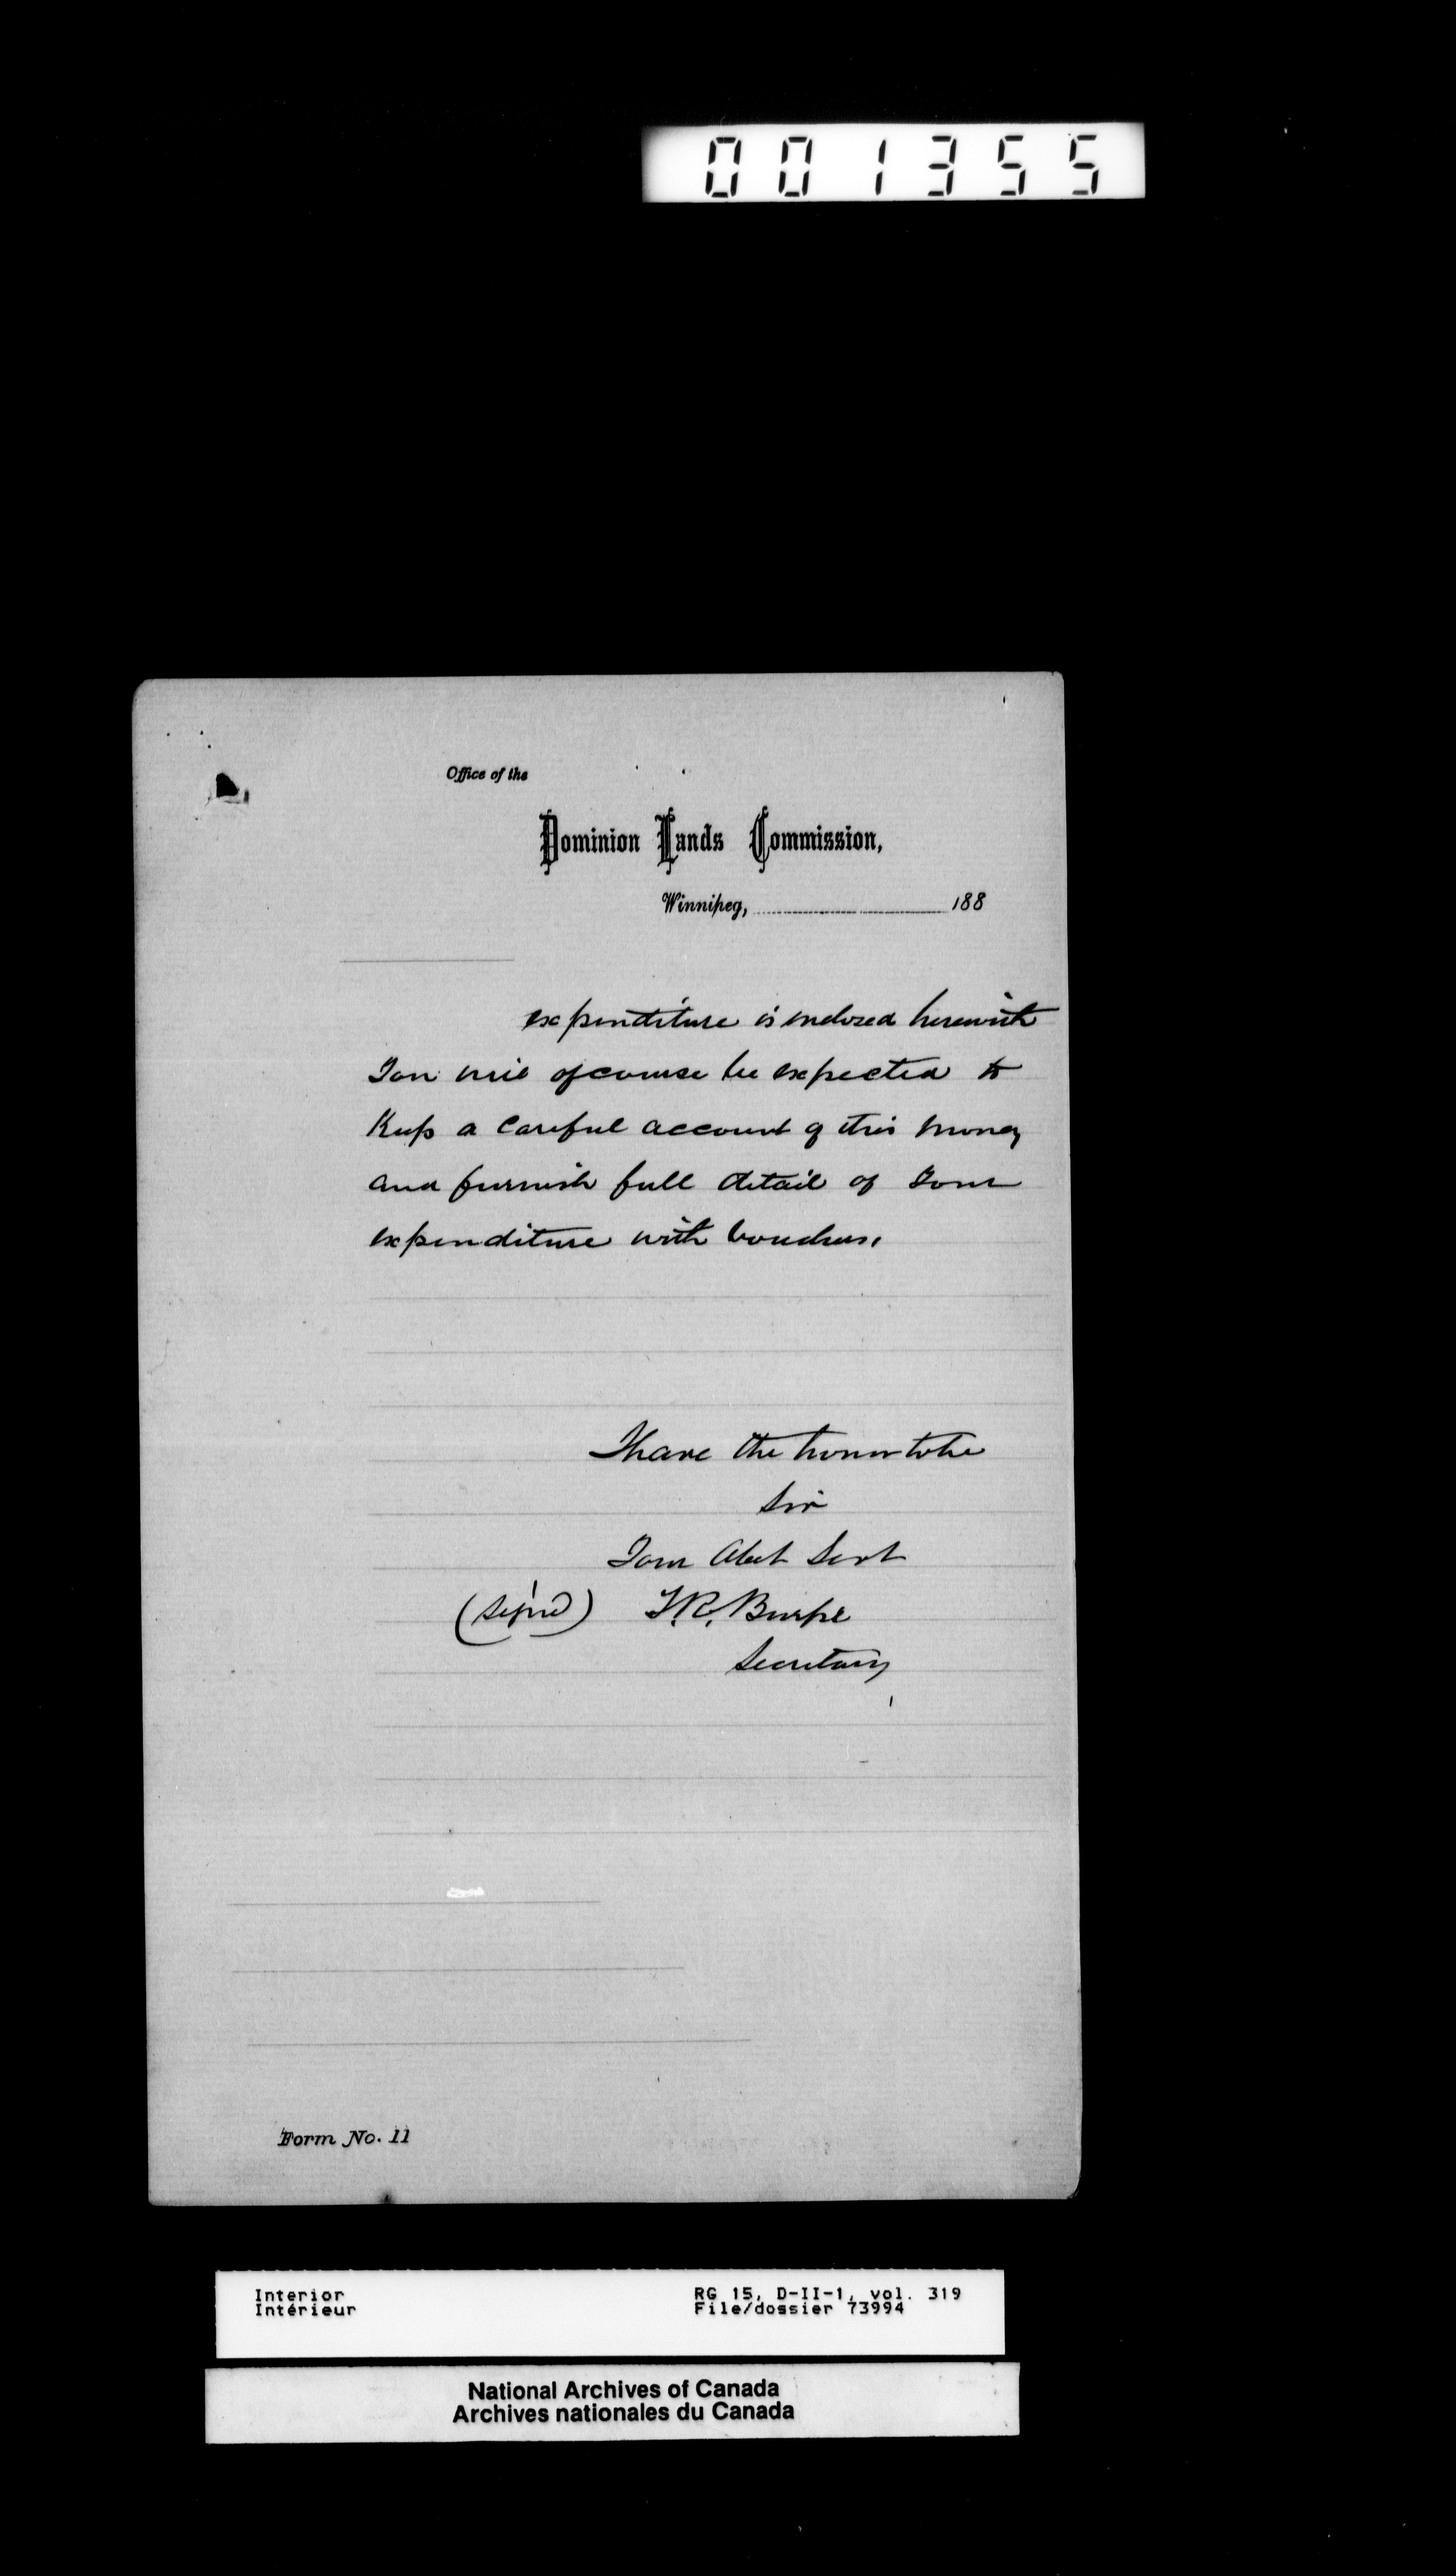 001355
Office of the
Dominion Lands Commission,
Winnipeg, 188
expenditure is enclosed herewith
You will of course be expected to
Keep a Careful account of this money
and furnish full detail of your
expenditure with vouchers.
I have the honor to be
Sir
Your Obet Servt
(Signed) H.R. Burpé
Secretary
Form No. 11
Interior
Intérieur
RG 15, D-II-1, vol. 319
File/dossier 73994
National Archives of Canada
Archives nationales du Canada